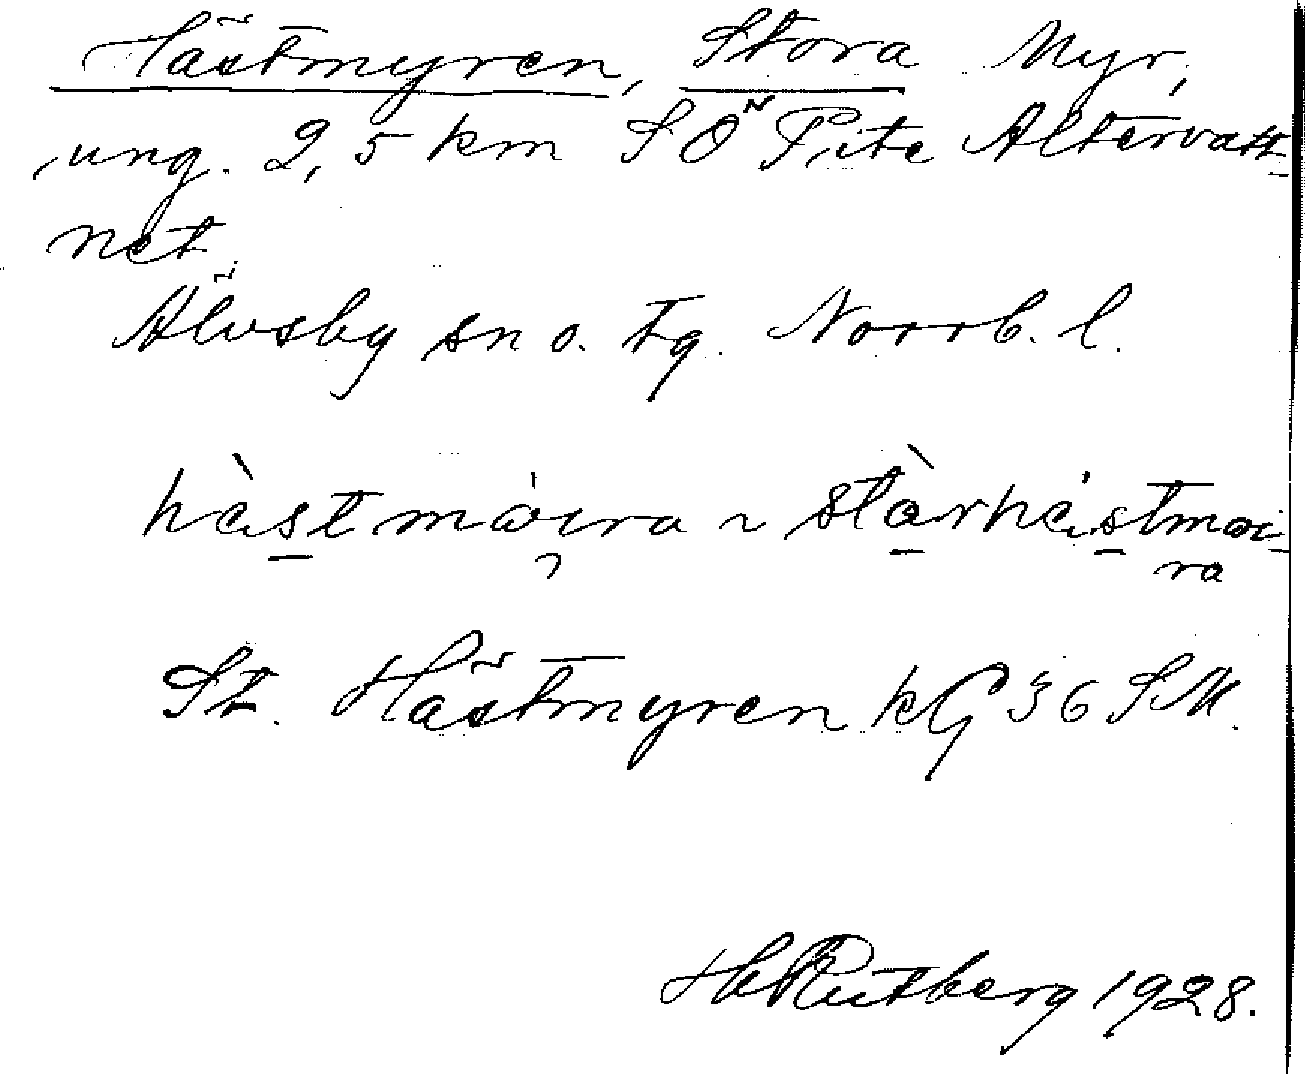 Hästmyren, Stora Myr,
ung. 2,5 km SÖ Pite Altervatt-
net
Älvsby sn o. tg. Norrb. l.
hàstmòira ~ stàrhástmoi-
ra
St. Hästmyren kG 36 SM.
H Rutberg 1928.